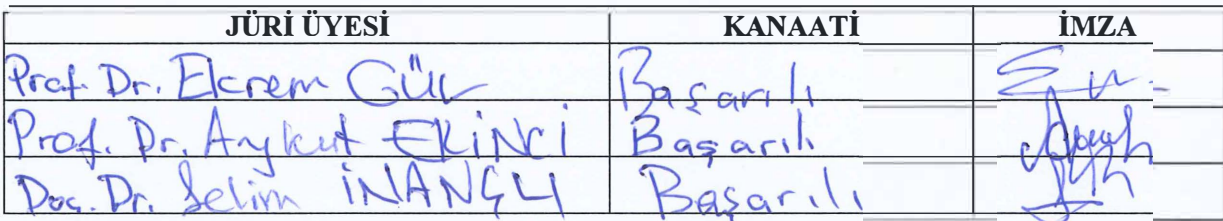 JÜRİ ÜYESİ KANAATİ İMZA
Prof. Dr. Ekrem GÜL Başarılı
Prof. Dr. Aykut EKİNCİ Başarılı
Doç. Dr. Selim İNANÇLI Başarılı